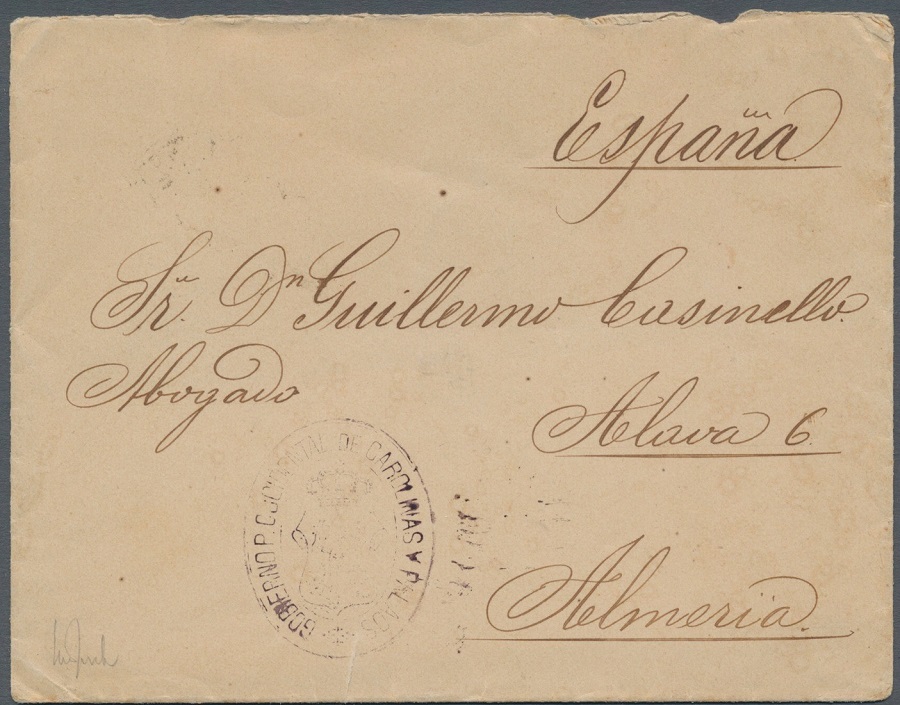 España
Sr. Dn Guillermo Casinello.
Abogado
Alava 6.
Almeria
GOBIERNO P. OCCIDENTAL DE CAROLINAS Y PALAOS